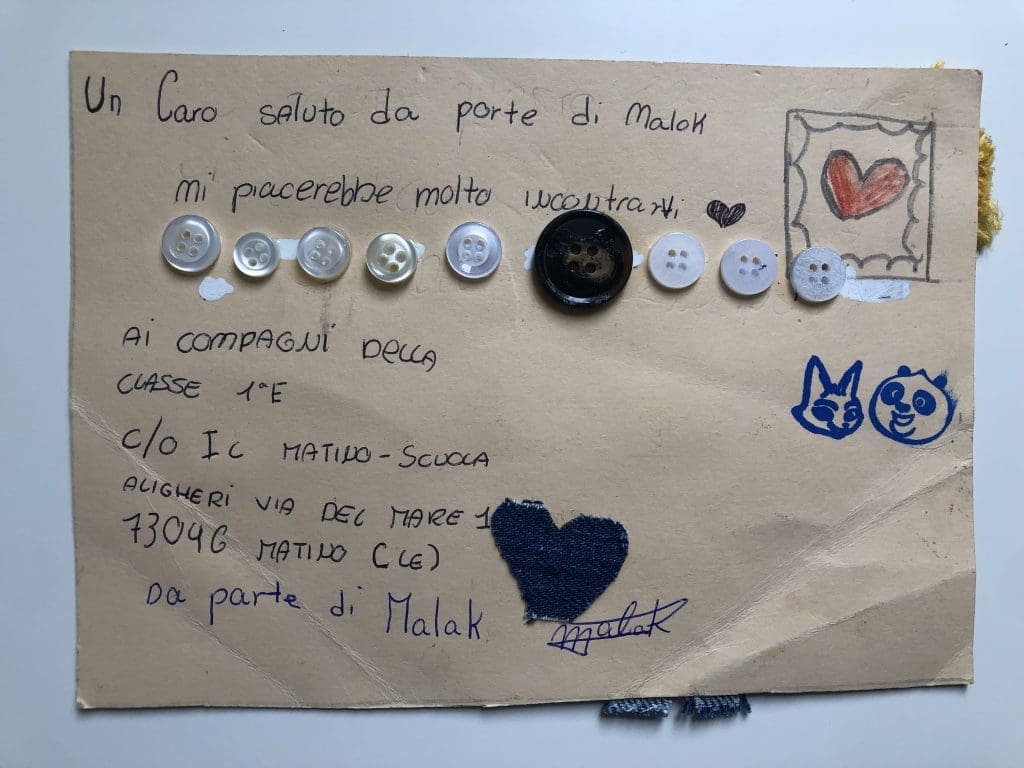 Un Caro saluto da parte di Malak
mi piacerebbe molto incontrarvi
Ai COMPAGNI DELLA
CLASSE 1ªE
C/O IC MATINO-SCUOLA
ALIGHERI VIA DEL MARE 1
73046 MATINO (LE)
Da parte di Malak
Malak